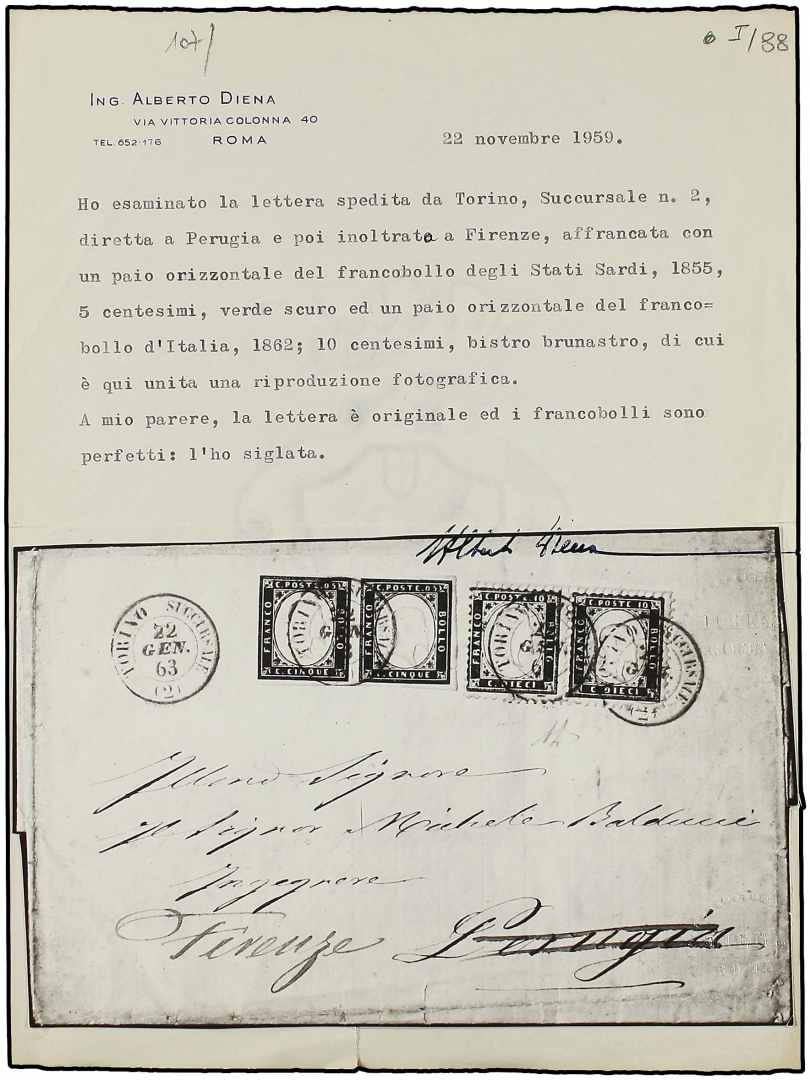 107/
I/88
ING. ALBERTO DIENA
VIA VITTORIA COLONNA 40
TEL. 652-176 ROMA
22 novembre 1959.
Ho esaminato la lettera spedita da Torino, Succursale n. 2,
diretta a Perugia e poi inoltrata a Firenze, affrancata con
un paio orizzontale del francobollo degli Stati Sardi, 1855,
5 centesimi, verde scuro ed un paio orizzontale del franco=
bollo d'Italia, 1862; 10 centesimi, bistro brunastro, di cui
è qui unita una riproduzione fotografica.
A mio parere, la lettera è originale ed i francobolli sono
perfetti: l'ho siglata.
Alberto Diena
TORINO SUCCURSALE
22
GEN.
63
(2)
C. POSTE. 05
FRANCO
BOLLO
C. CINQUE
C. POSTE. 05
BOLLO
C. CINQUE
C. POSTE 10
FRANCO
BOLLO
C. DIECI
C. POSTE 10
FRANCO
BOLLO
C. DIECI
Illmo Signore
Il Signor Michele Balducci
Ingegnere
Firenze Perugia